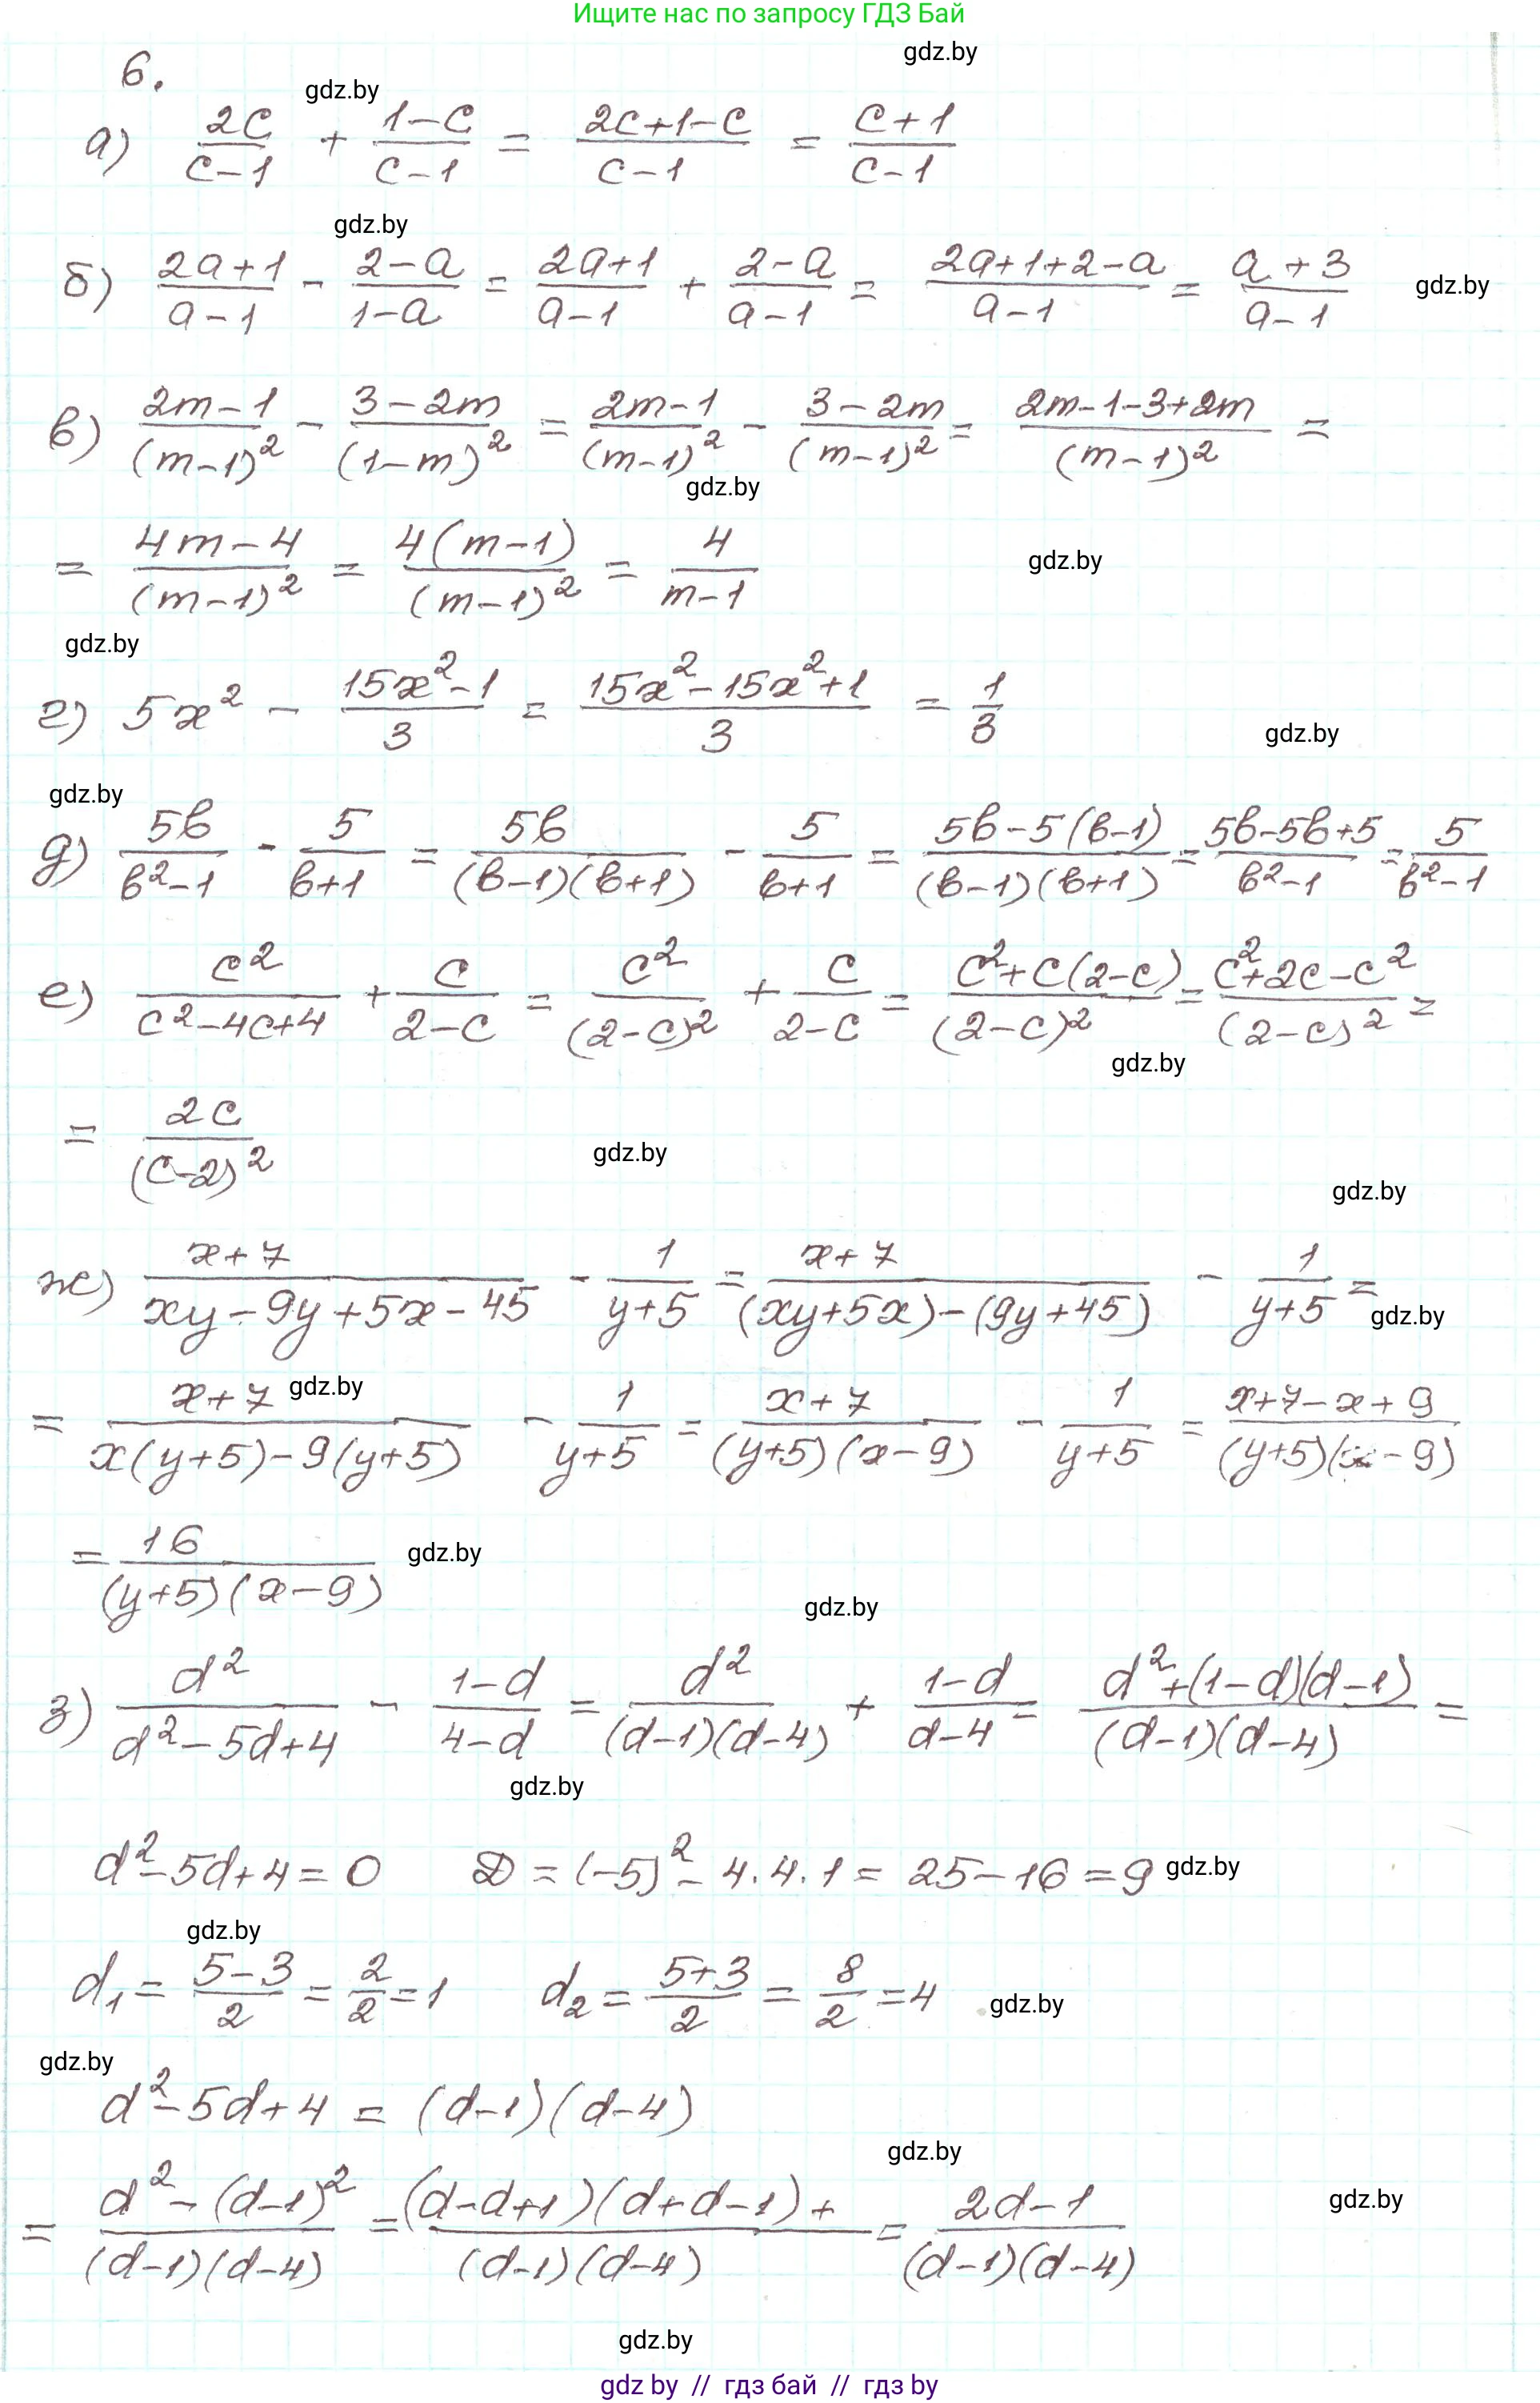 Ищите нас по запросу ГДЗ Бай
gdz.by
6.
gdz.by
а) 2c/(c-1) + (1-c)/(c-1) = (2c+1-c)/(c-1) = (c+1)/(c-1)
gdz.by
б) (2a+1)/(a-1) - (2-a)/(1-a) = (2a+1)/(a-1) + (2-a)/(a-1) = (2a+1+2-a)/(a-1) = (a+3)/(a-1) gdz.by
в) (2m-1)/(m-1)² - (3-2m)/(1-m)² = (2m-1)/(m-1)² - (3-2m)/(m-1)² = (2m-1-3+2m)/(m-1)² =
gdz.by
= (4m-4)/(m-1)² = 4(m-1)/(m-1)² = 4/(m-1) gdz.by
gdz.by
г) 5x² - (15x²-1)/3 = (15x²-15x²+1)/3 = 1/3 gdz.by
gdz.by
д) 5b/(b²-1) - 5/(b+1) = 5b/((b-1)(b+1)) - 5/(b+1) = (5b-5(b-1))/((b-1)(b+1)) = (5b-5b+5)/(b²-1) = 5/(b²-1)
е) c²/(c²-4c+4) + c/(2-c) = c²/(2-c)² + c/(2-c) = (c²+c(2-c))/(2-c)² = (c²+2c-c²)/(2-c)² =
gdz.by
= 2c/(c-2)² gdz.by
gdz.by
ж) (x+7)/(xy-9y+5x-45) - 1/(y+5) = (x+7)/((xy+5x)-(9y+45)) - 1/(y+5) = gdz.by
gdz.by
= (x+7)/(x(y+5)-9(y+5)) - 1/(y+5) = (x+7)/((y+5)(x-9)) - 1/(y+5) = (x+7-x+9)/((y+5)(x-9))
= 16/((y+5)(x-9)) gdz.by
gdz.by
з) d²/(d²-5d+4) - (1-d)/(4-d) = d²/((d-1)(d-4)) + (1-d)/(d-4) = (d²+(1-d)(d-1))/((d-1)(d-4)) =
gdz.by
d²-5d+4=0 D=(-5)²-4·4·1=25-16=9 gdz.by
gdz.by
d₁=(5-3)/2=2/2=1 d₂=(5+3)/2=8/2=4 gdz.by
gdz.by
d²-5d+4=(d-1)(d-4)
gdz.by
= (d²-(d-1)²)/((d-1)(d-4)) = ((d-d+1)(d+d-1)+)/((d-1)(d-4)) = (2d-1)/((d-1)(d-4)) gdz.by
gdz.by
gdz by // гдз бай // гдз by